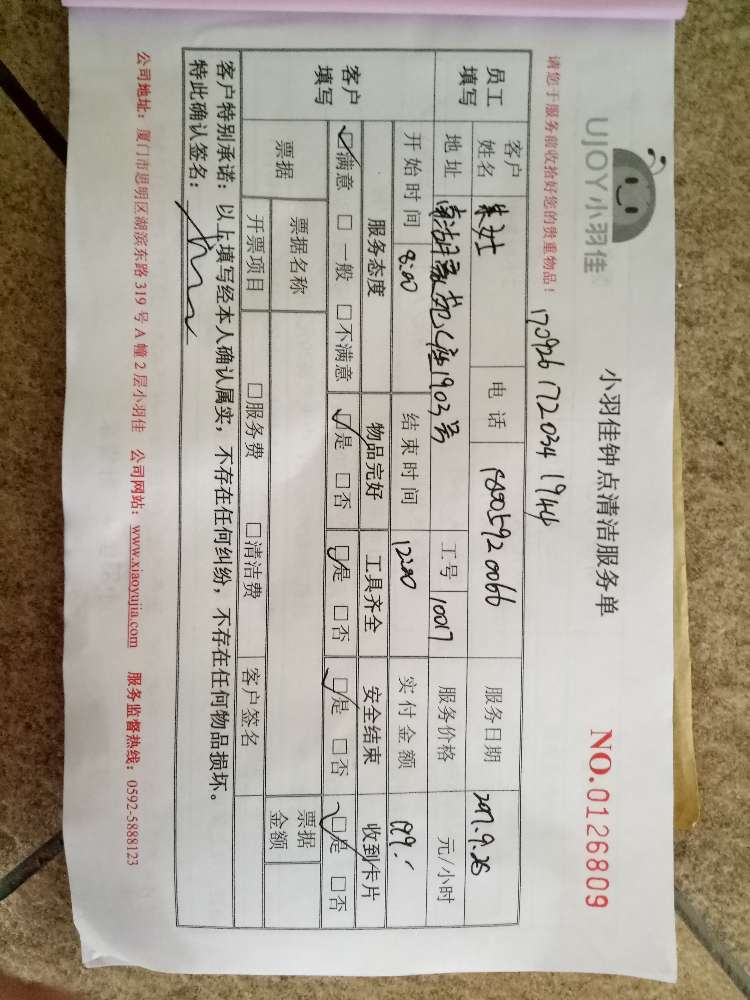 UJOY小羽佳
小羽佳钟点清洁服务单
NO.0126809
请您于服务前收拾好您的贵重物品!
170926 172034 1944
员工填写
客户姓名 朱女士 电话 服务日期
地址 1903号 工号 10017 服务价格 元/小时
开始时间 8:00 结束时间 12:00 实付金额 199.
客户填写
服务态度 物品完好 工具齐全 安全结束 收到卡片
☑满意 □一般 □不满意 ☑是 □否 ☑是 □否 ☑是 □否 ☑是 □否
票据 票据名称 票据金额
开票项目 □服务费 □清洁费 客户签名
客户特别承诺:以上填写经本人确认属实,不存在任何纠纷,不存在任何物品损坏。
特此确认签名:
公司地址:厦门市思明区湖滨东路319号A幢2层小羽佳 公司网站:www.xiaoyujia.com 服务监督热线:0592-5888123